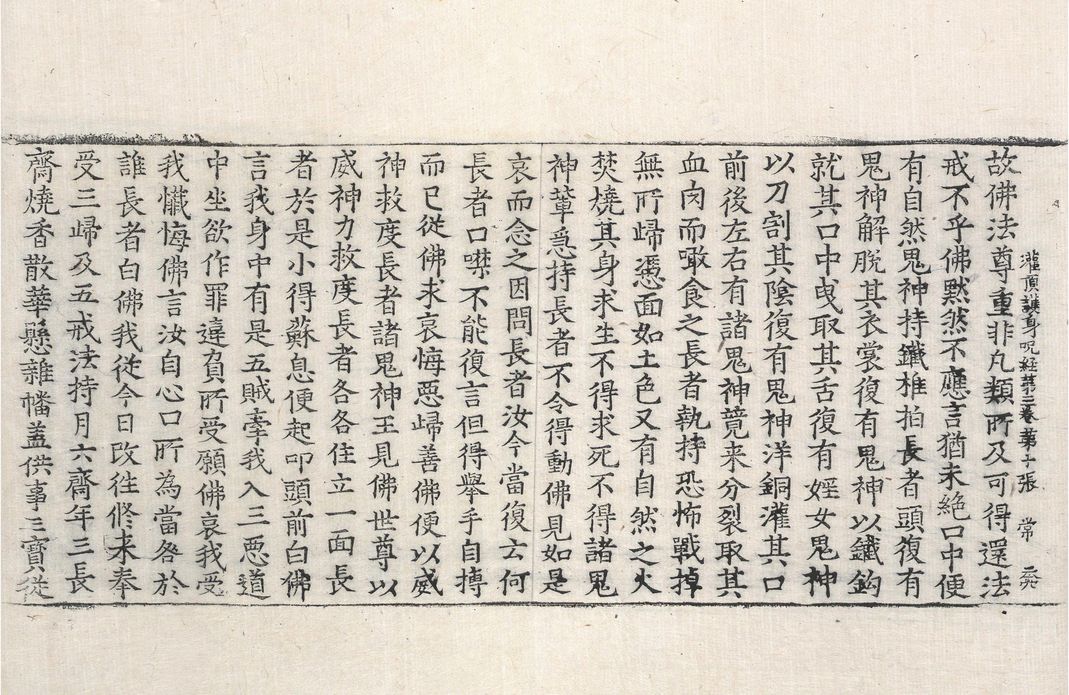 灌頂護身呪経第三卷 第十張 常
故佛法尊重非凡類所及可得還法
戒不乎佛黙然不應言猶未絕口中便
有自然鬼神持鐵椎拍長者頭復有
鬼神解脫其衣裳復有鬼神以鐵鈎
就其口中曳取其舌復有婬女鬼神
以刀割其陰復有鬼神洋銅灌其口
前後左右有諸鬼神竟来分裂取其
血肉而噉食之長者執持恐怖戰掉
無所歸憑面如土色又有自然之火
焚燒其身求生不得求死不得諸鬼
神軰急持長者不令得動佛見如是
哀而念之因問長者汝今當復云何
長者口噤不能復言但得舉手自搏
而已從佛求哀悔惡歸善佛便以威
神救度長者諸鬼神王見佛世尊以
威神力救度長者各各住立一面長
者於是小得蘇息便起叩頭前白佛
言我身中有是五賊牽我入三惡道
中坐欲作罪違負所受願佛哀我受
我懺悔佛言汝自心口所為當咎於
誰長者白佛我從今日改徃修来奉
受三歸及五戒法持月六齋年三長
齋燒香散華懸雜幡盖供事三寶從